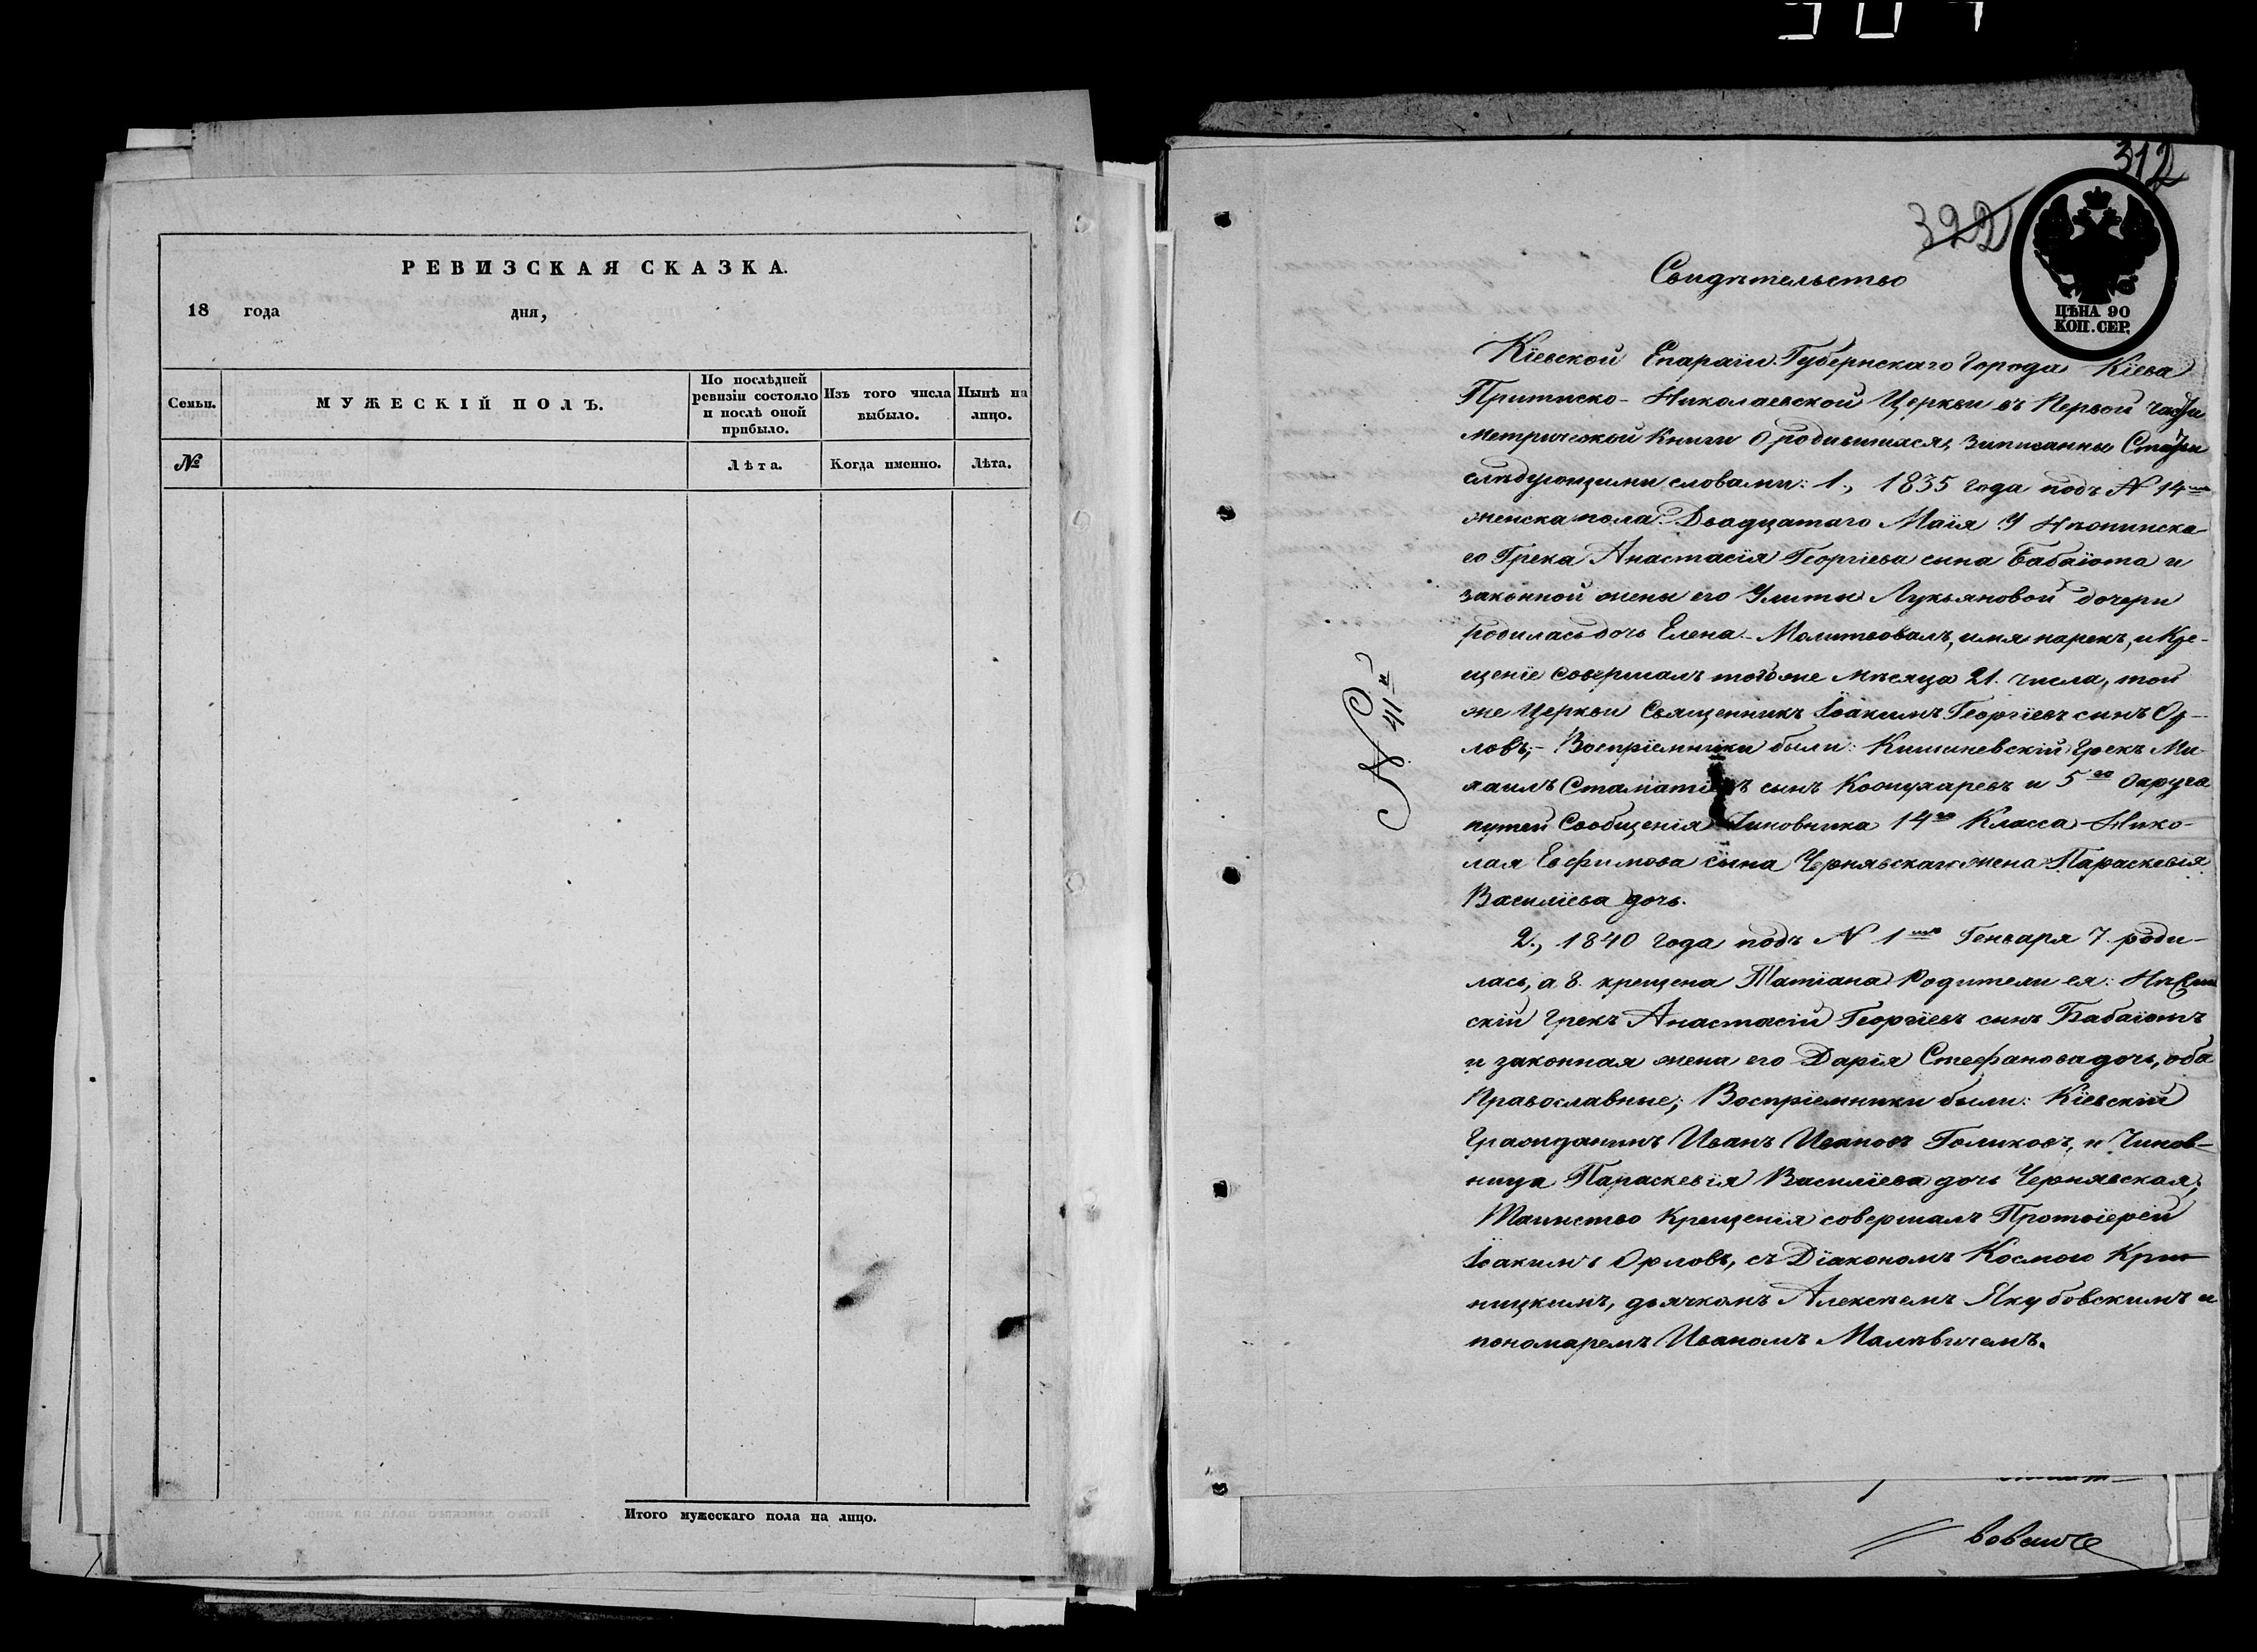 РЕВИЗСКАЯ СКАЗКА.
18 года дня,
Семьи.
МУЖЕСКІЙ ПОЛЪ.
По послѣдней ревизіи состояло и послѣ оной прибыло.
Изъ того числа выбыло.
Нынѣ на лицо.
№
Лѣта.
Когда именно.
Лѣта.
Итого мужескаго пола на лицо.
312
322
ЦѢНА 90
КОП. СЕР.
Свидѣтельство
Кіевской Епархіи Губернскаго Города Кіева
Притиско-Николаевской Церкви въ Первой части
метрической Книги О родившихся, записанны Статьи
слѣдующими словами: 1., 1835 года подъ N 14мъ
женска пола. Двадцатаго Маія У Нѣжинска-
го Грека Анастасія Георгіева сына Бабаіота и
законной жены его Улиты Лукьяновой дочери
родилась дочь Елена. Молитвовалъ, имя нарекъ, и Кре-
щеніе совершалъ того же мѣсяца 21. числа, той
же Церкви Священникъ Іоакимъ Георгіевъ сынъ Ор-
ловъ,- Воспріемники были: Кишиневскій Грекъ Ми-
хаилъ сынъ и 5го Округа
путей Сообщенія Чиновника 14го Класса Нико-
лая Евфимова сына Чернявскаго жена Параскевія
Василіева дочь.
2., 1840 года подъ N 1мъ Генваря 7 роди-
лась, а 8. крещена Татіана Родители ея:
скій Грекъ Анастасій Георгіевъ сынъ Бабаіотъ
и законная жена его Дарія Стефанова дочь, оба
Православные; Воспріемники были: Кіевскій
Гражданинъ Иванъ Ивановъ Голиковъ, и Чинов-
ница Параскевія Василіева дочь Чернявская,
Таинство Крещенія совершалъ Протоіерей
Іоакимъ Орловъ, съ Діакономъ Космою Кри-
ницкимъ, дьячкомъ Алексѣемъ Якубовскимъ и
пономаремъ Иваномъ Малѣвичемъ.
N 41й